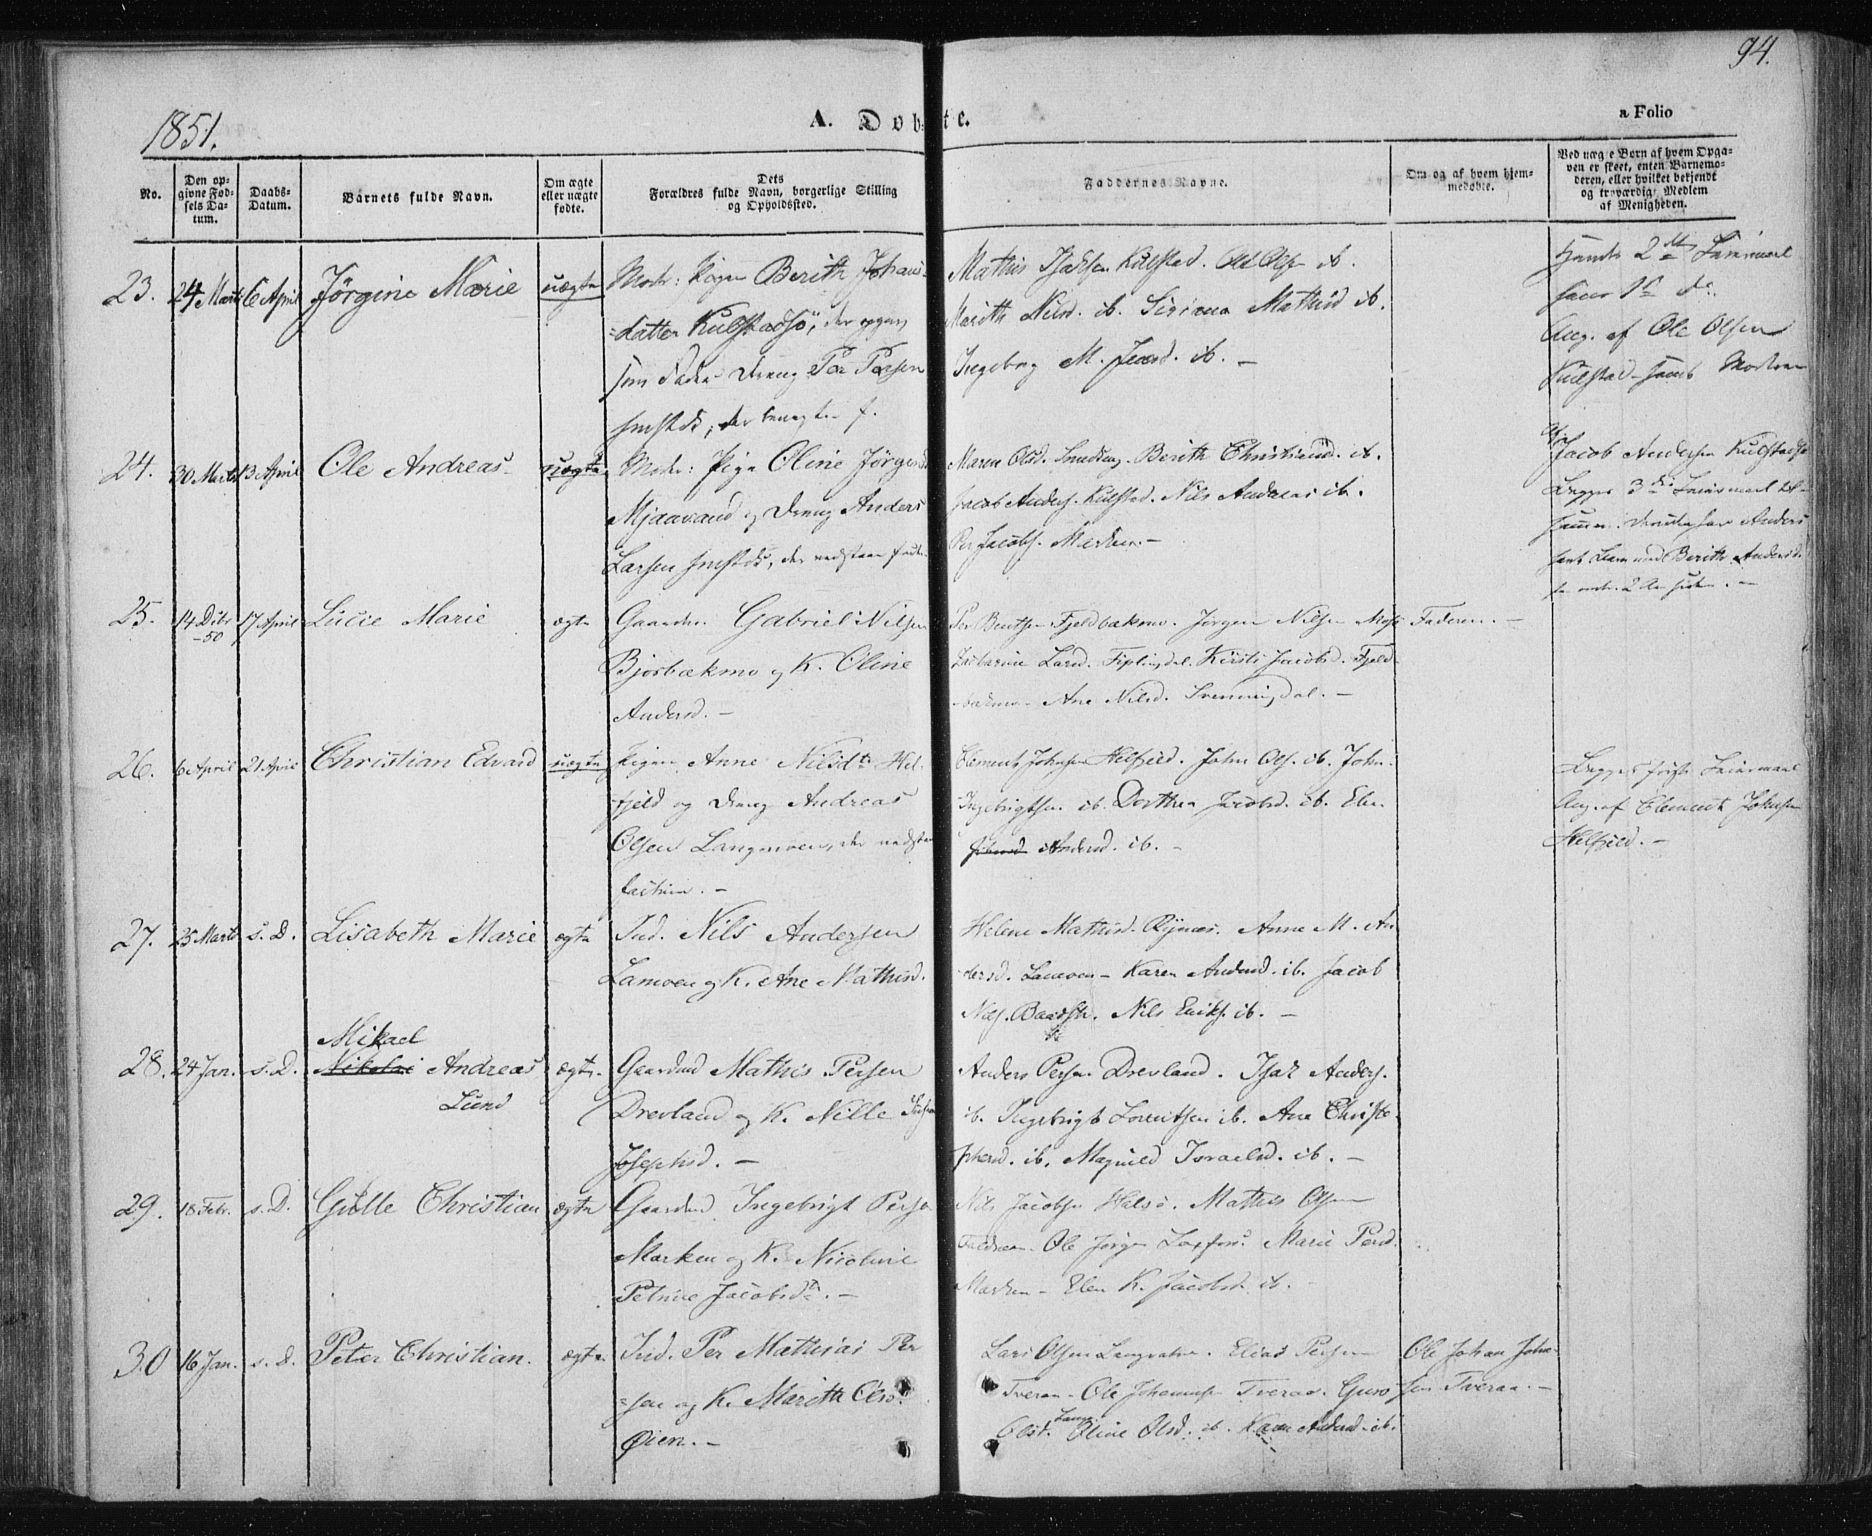 94.
1851.
A. Døbte.
a Folio
No.
Den op-
givne Fød-
sels Da-
tum.
Daabs-
Datum.
Barnets fulde Navn.
Om ægte
eller uægte
fødte.
Dets
Forældres fulde Navn, borgerlige Stilling
og Opholdssted.
Faddernes Navne.
Om og af hvem hjem-
medøbte.
Ved uægte Børn af hvem Opga-
ven er skeet, enten Barnemo-
deren, eller hvilket bekjendt
og troværdig Medlem
af Menigheden.
23. 24 Marts 6 April Jørgine Marie uægte Moder: Pigen Berith Johans-
datter Kulstadsø, der
som Fader Dreng Per Persen
der benegter
Mathis Isaksen Kulstad. Ole Olsen ib.
Marith Nilsd. ib. Mathisd ib.
Ingeborg M. ib. –
2det Leiermaal
hans 1ste do.
Ang. af Ole Olsen
Kulstad samt Modren
24. 30 Marts 13 April Ole Andreas uægte Moder: Pige Oline Jørgensd
Mjaavand og Dreng Anders
Larsen
Maren Olsd. Berith Christiansd. ib.
Jacob Anders. Kulstad. Nils Andreas ib.
Per Jacobs. Marken. –
Jacob Andersen Kulstadsø
Begges 3die Leiermaal
Anders
Berith Andersd.
25. 14 Debr -50 17 April Lucie Marie ægte Gaardm. Gabriel Nilsen
Bjørbækmo og K. Oline
Andersd. –
Per Bentsen Fjeldbækmo. Jørgen Nilsen Mosj
Larsd. Fiplingdal. Kirsti Jacobsd. Fjeld-
bækmo. Ane Nilsd. Svenningdal. –
Faderen. –
26. 6 April 21 April Christian Edvard uægte Pigen Anne Nilsdtr Hel-
fjeld og Dreng Andreas
Olsen Langmoen, der
Clement Johnsen Helfjeld. John Ols. ib. John
Ingebrigtsen ib. Dorthea Jacobsd. ib. Elen
Andersd. ib. –
Begges første Leiermaal
Ang. af Clement Johnsen
Helfjeld. –
27. 25 Marts s. D. Lisabeth Marie ægte Ind. Nils Andersen
Lamoen og K. Ane Mathisd.
Helene Mathisd. Rynes. Anne M. An-
dersd. Lamoen – Karen Andersd. ib. Jacob
Nils. Baadst. Nils Eriks. ib. –
28. 24 Jan. s. D. Mikael
Nikolai Andreas
Lund
ægte Gaardmd Mathis Persen
Drevland og K. Nille
Josephsd. –
Anders Persen Drevland. Isak Anders.
ib. Ingebrigt Lorentsen ib. Ane Christo-
phersd. ib. Magnild Israelsd. ib. –
29. 18 Febr. s. D. Gulle Christian ægte Gaardmd Ingebrigt Persen
Marken og K. Nicoline
Petrine Jacobsdr. –
Nils Jacobsen Halsø. Mathis Olsen
Ole Jørgen Laxfors. Marie Persd.
Marken – Elen K. Jacobsd. ib.
30 16 Jan. s. D. Peter Christian. ægte Ind. Per Mathias Per-
sen og K. Marith Olsd.
Øien. –
Lars Olsen Langvatn. Elias Persen
Tveraa – Ole Johannsen Tveraa. Guro
Olsd. Oline Olsd. ib. Karen Andersd. ib.
Ole Johan John-
sen Tveraa. –